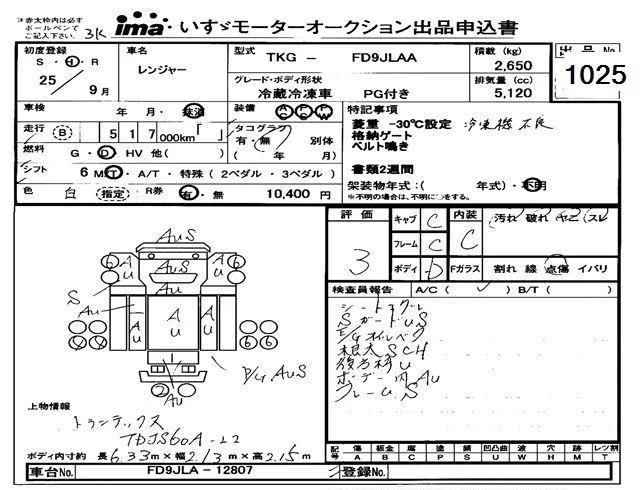 ※赤太枠内は必ず
ボールペンで
ご記入下さい。
3K
ima いすゞモーターオークション出品申込書
初度登録
S・H・R
25
9月
車名
レンジャー
型式
TKG - FD9JLAA
グレード・ボディ形状
冷蔵冷凍車 PG付き
積載 (kg)
2,650
排気量 (cc)
5,120
出品No
1025
車検
年・月・抹消
装備
AC PS PW
特記事項
菱重 -30℃設定 冷凍機不良
格納ゲート
ベルト鳴き
書類2週間
架装物年式:( 年式)・不明
※不明の場合は、不明に○をする。
走行 B 517 000km
タコグラフ
有・無 別体
( 年 月)
燃料
G・D HV 他( )
シフト
6 MT・A/T・特殊(2ペダル・3ペダル)
色 白 (指定)
R券 有・無 10,400円
評価
3
キャブ C
フレーム C
ボディ D
内装
C
汚れ 破れ ヤニ スレ
Fガラス 割れ 線 点傷 イバリ
検査員報告 A/C( ) B/T( )
SガードUS
E/Gオイルベタ
根太SCH
ボデー内AU
フレームS
AUS
AUS
6 AU AU 6
S
AU
AU AU AU
6 6
P/G AUS
AU
2
AU
上物情報
トランテックス
TDJS60A-22
ボディ内寸約 長6.33m×幅2.13m×高2.15m
記号 傷 A 板金 B 腐 C 歪 P サビ S 凹凸曲 U 波 W 穴 H 跡 M 汚 Y レツ割 T
車台No. FD9JLA - 12807
登録No.